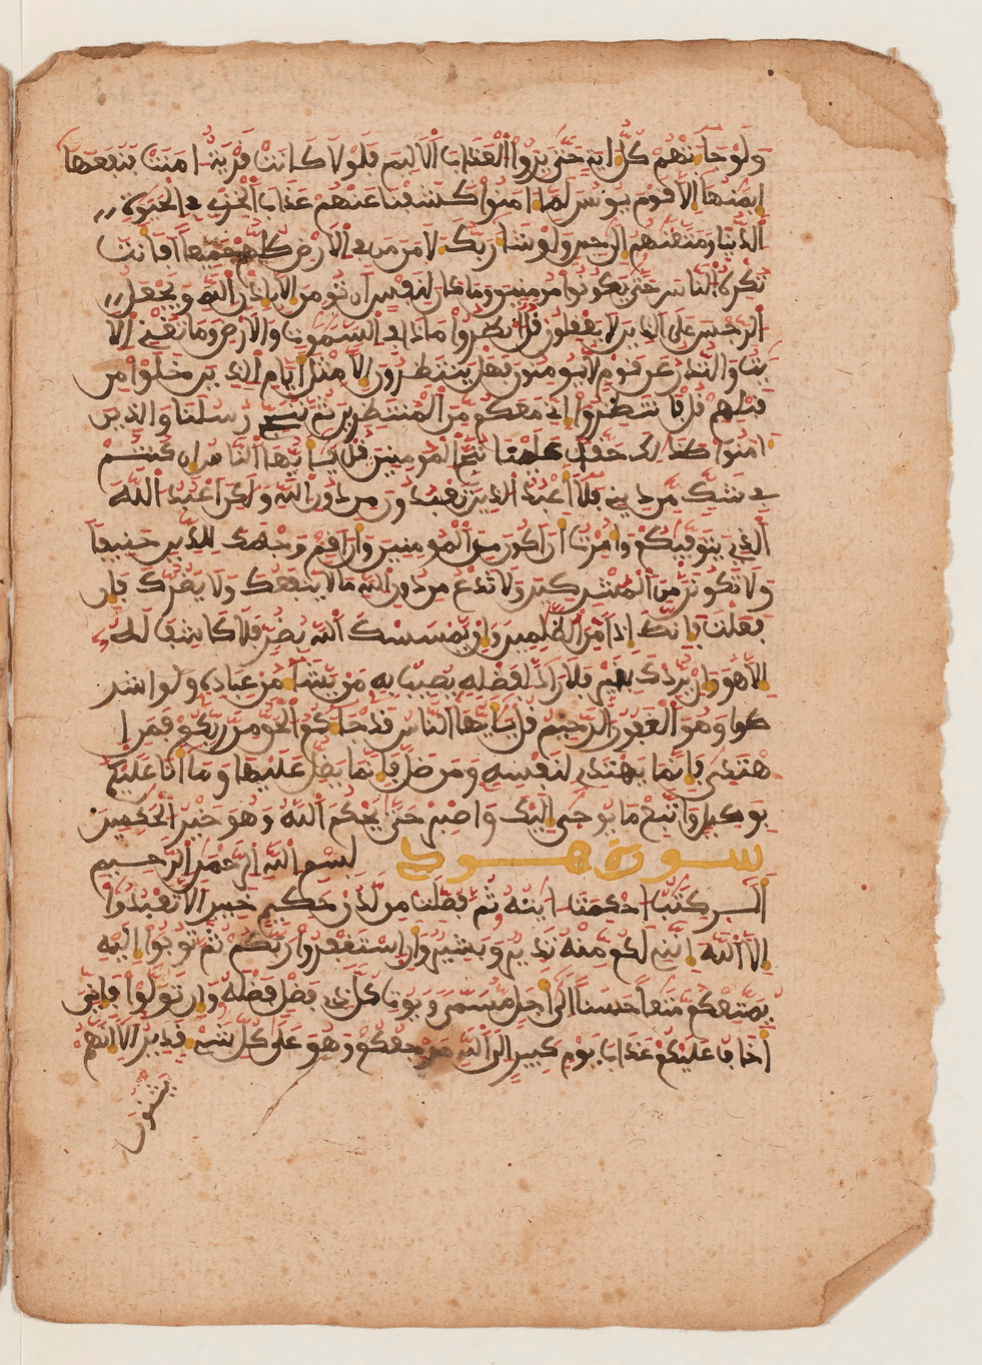 وَلَوْ جَآءَتْهُمْ كُلُّ ءَايَةٍ حَتَّىٰ يَرَوُاْ الْعَذَابَ اَلَالِيمَ فَلَوْلَا كَانَتْ قَرْيَةٌ ـامَنَتْ فَنَفَعَهَا
إِيمَٰنُهَا إِلَّا قَوْمَ يُونُسَ لَمَّا ءَامَنُواْ كَشَفْنَا عَنْهُمْ عَذَابَ اَلْخِزْيِ فِي اِلْحَيَوٰةِ
اِلدُّنْيَا وَمَتَّعْنَٰهُمُ إِلَىٰ حِينٍ وَلَوْ شَآءَ رَبُّكَ لَأَمَنَ مَن فِي اِلَارْضِ كُلُّهُمْ جَمِيعاً اَفَأَنتَ
تُكْرِهُ اُلنَّاسَ حَتَّىٰ يَكُونُواْ مُومِنِينَ وَمَا كَانَ لِنَفْسٍ اَن تُومِنَ إِلَّا بِإِذْنِ اِللَّهِ وَيَجْعَلُ
اُلرِّجْسَ عَلَى اَلذِينَ لَا يَعْقِلُونَ قُلُ اُنظُرُواْ مَاذَا فِي اِلسَّمَٰوَٰتِ وَالَارْضِ وَمَا تُغْنِي اِلَا
يَٰتُ وَالنُّذُرُ عَن قَوْمٍ لَّا يُومِنُونَ فَهَلْ يَنتَظِرُونَ إِلَّا مِثْلَ أَيَّامِ اِلذِينَ خَلَوْاْ مِن
قَبْلِهِمْ قُلْ فَانتَظِرُواْ إِنِّي مَعَكُم مِّنَ اَلْمُنتَظِرِينَ ثُمَّ نُنَجِّي رُسُلَنَا وَالذِينَ
ءَامَنُواْ كَذَٰلِكَ حَقّاً عَلَيْنَا نُنَجِّ اِلْمُومِنِينَ قُلْ يَٰٓأَيُّهَا اَلنَّاسُ إِن كُنتُمْ
فِي شَكٍّ مِّن دِينِي فَلَآ أَعْبُدُ اُلذِينَ تَعْبُدُونَ مِن دُونِ اِللَّهِ وَلَٰكِنَ اَعْبُدُ اُللَّهَ
اَلذِي يَتَوَفَّيٰكُمْ وَأُمِرْتُ أَنَ اَكُونَ مِنَ اَلْمُومِنِينَ وَأَنَ اَقِمْ وَجْهَكَ لِلدِّينِ حَنِيفاً
وَلَا تَكُونَنَّ مِنَ اَلْمُشْرِكِينَ وَلَا تَدْعُ مِن دُونِ اِللَّهِ مَا لَا يَنفَعُكَ وَلَا يَضُرُّكَ فَإِن
فَعَلْتَ فَإِنَّكَ إِذاً مِّنَ اَلظَّٰلِمِينَ وَإِنْ يَّمْسَسْكَ اَللَّهُ بِضُرٍّ فَلَا كَاشِفَ لَهُۥٓ
إِلَّا هُوَ وَإِنْ يُّرِدْكَ بِخَيْرٍ فَلَا رَآدَّ لِفَضْلِهِ يُصِيبُ بِهِ مَنْ يَّشَآءُ مِنْ عِبَادِهِ وَلَوَ اشر
كوا وَهُوَ اَلْغَفُورُ اُلرَّحِيمُ قُلْ يَٰٓأَيُّهَا اَلنَّاسُ قَدْ جَآءَكُمُ اُلْحَقُّ مِن رَّبِّكُمْ فَمَنِ ا
هْتَدَىٰ فَإِنَّمَا يَهْتَدِي لِنَفْسِهِ وَمَن ضَلَّ فَإِنَّمَا يَضِلُّ عَلَيْهَا وَمَآ أَنَا عَلَيْكُم
بِوَكِيلٍ وَاتَّبِعْ مَا يُوحَىٰٓ إِلَيْكَ وَاصْبِرْ حَتَّىٰ يَحْكُمَ اَللَّهُ وَهُوَ خَيْرُ اُلْحَٰكِمِينَ
سورة هود بسم الله الرحمن الرحيم
أَلَٓرۖ كِتَٰبٌ احْكِمَتَ ـايَٰتُهُ ثُمَّ فُصِّلَتْ مِن لَّدُنْ حَكِيمٍ خَبِيرٍ اَلَّا تَعْبُدُوٓاْ
إِلَّا اَللَّهَ إِنَّنِي لَكُم مِّنْهُ نَذِيرٌ وَبَشِيرٌ وَأَنِ اِسْتَغْفِرُواْ رَبَّكُمْ ثُمَّ تُوبُوٓاْ إِلَيْهِ
يُمَتِّعْكُم مَّتَٰعاً حَسَناً اِلَىٰٓ أَجَلٍ مُّسَمّىً وَيُوتِ كُلَّ ذِي فَضْلٍ فَضْلَهُ وَإِن تَوَلَّوْاْ فَإِنِّيَ
أَخَافُ عَلَيْكُمْ عَذَابَ يَوْمٍ كَبِيرٍ اِلَى اَللَّهِ مَرْجِعُكُمْ وَهُوَ عَلَىٰ كُلِّ شَيْءٍ قَدِيرٌ اَلَآ إِنَّهُمْ
يثنون